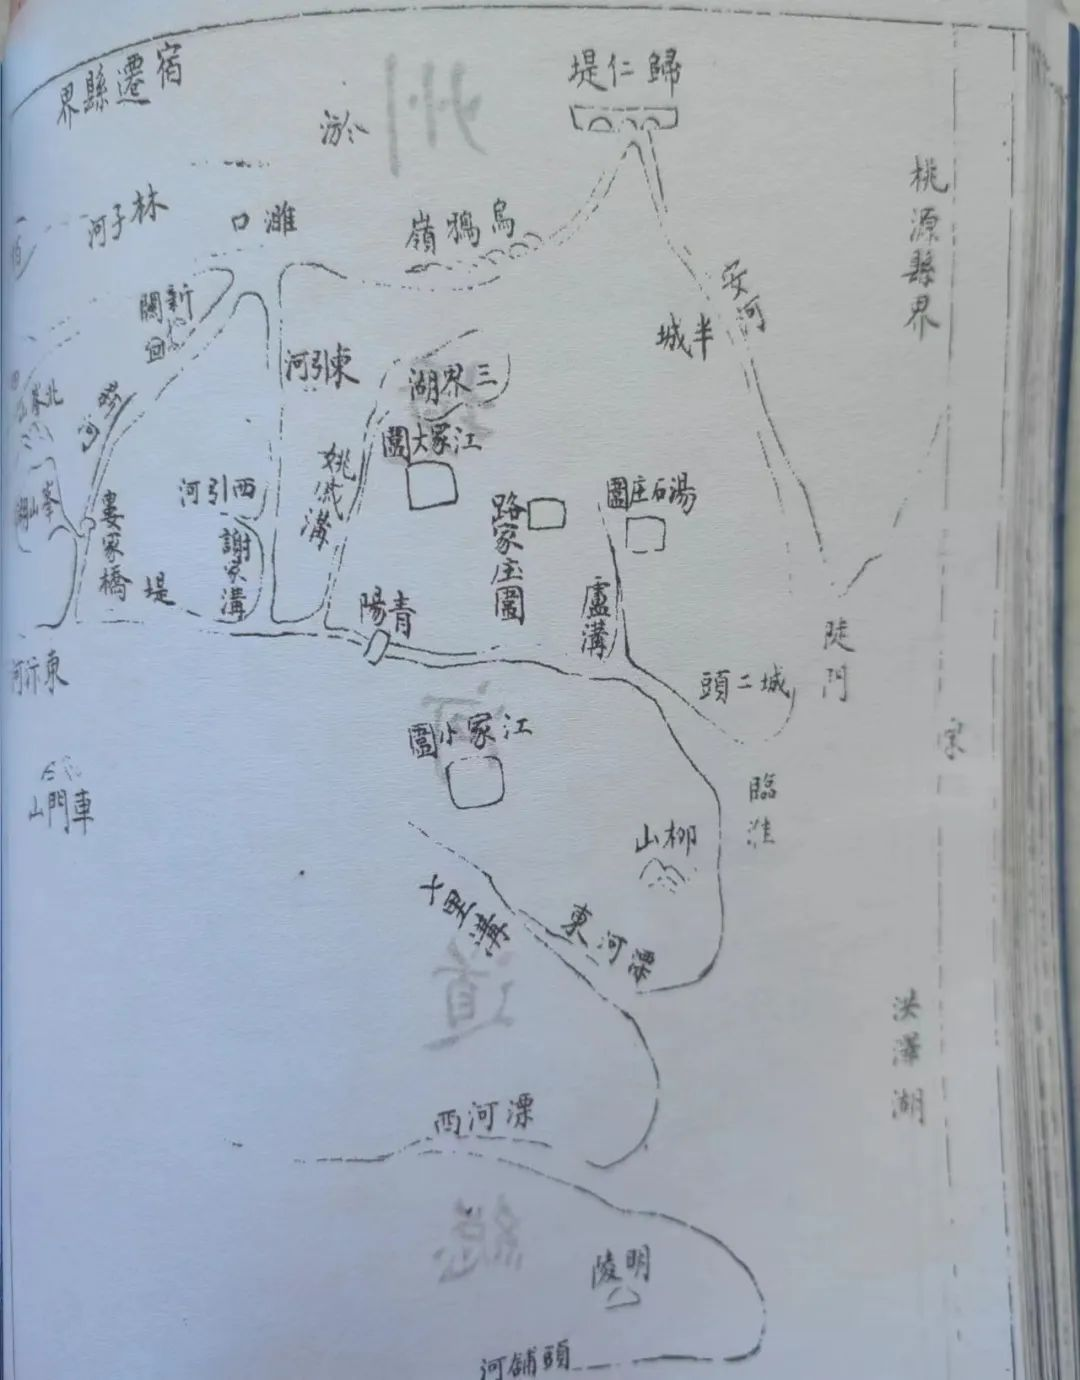 宿遷縣界
歸仁堤
桃源縣界
林子河
濉口
烏鴉嶺
安河
半城
新關
東引河
三界湖
江家大圍
姚家溝
西引河
謝家溝
婁家橋
堤
路家庄圍
湯石庄圍
盧溝
青陽
陡門
東汴河
城二頭
江家小圍
車門山
臨淮
柳山
十里溝
東河漂
洪澤湖
西河漂
明陵
河鋪頭
州
河
道
總